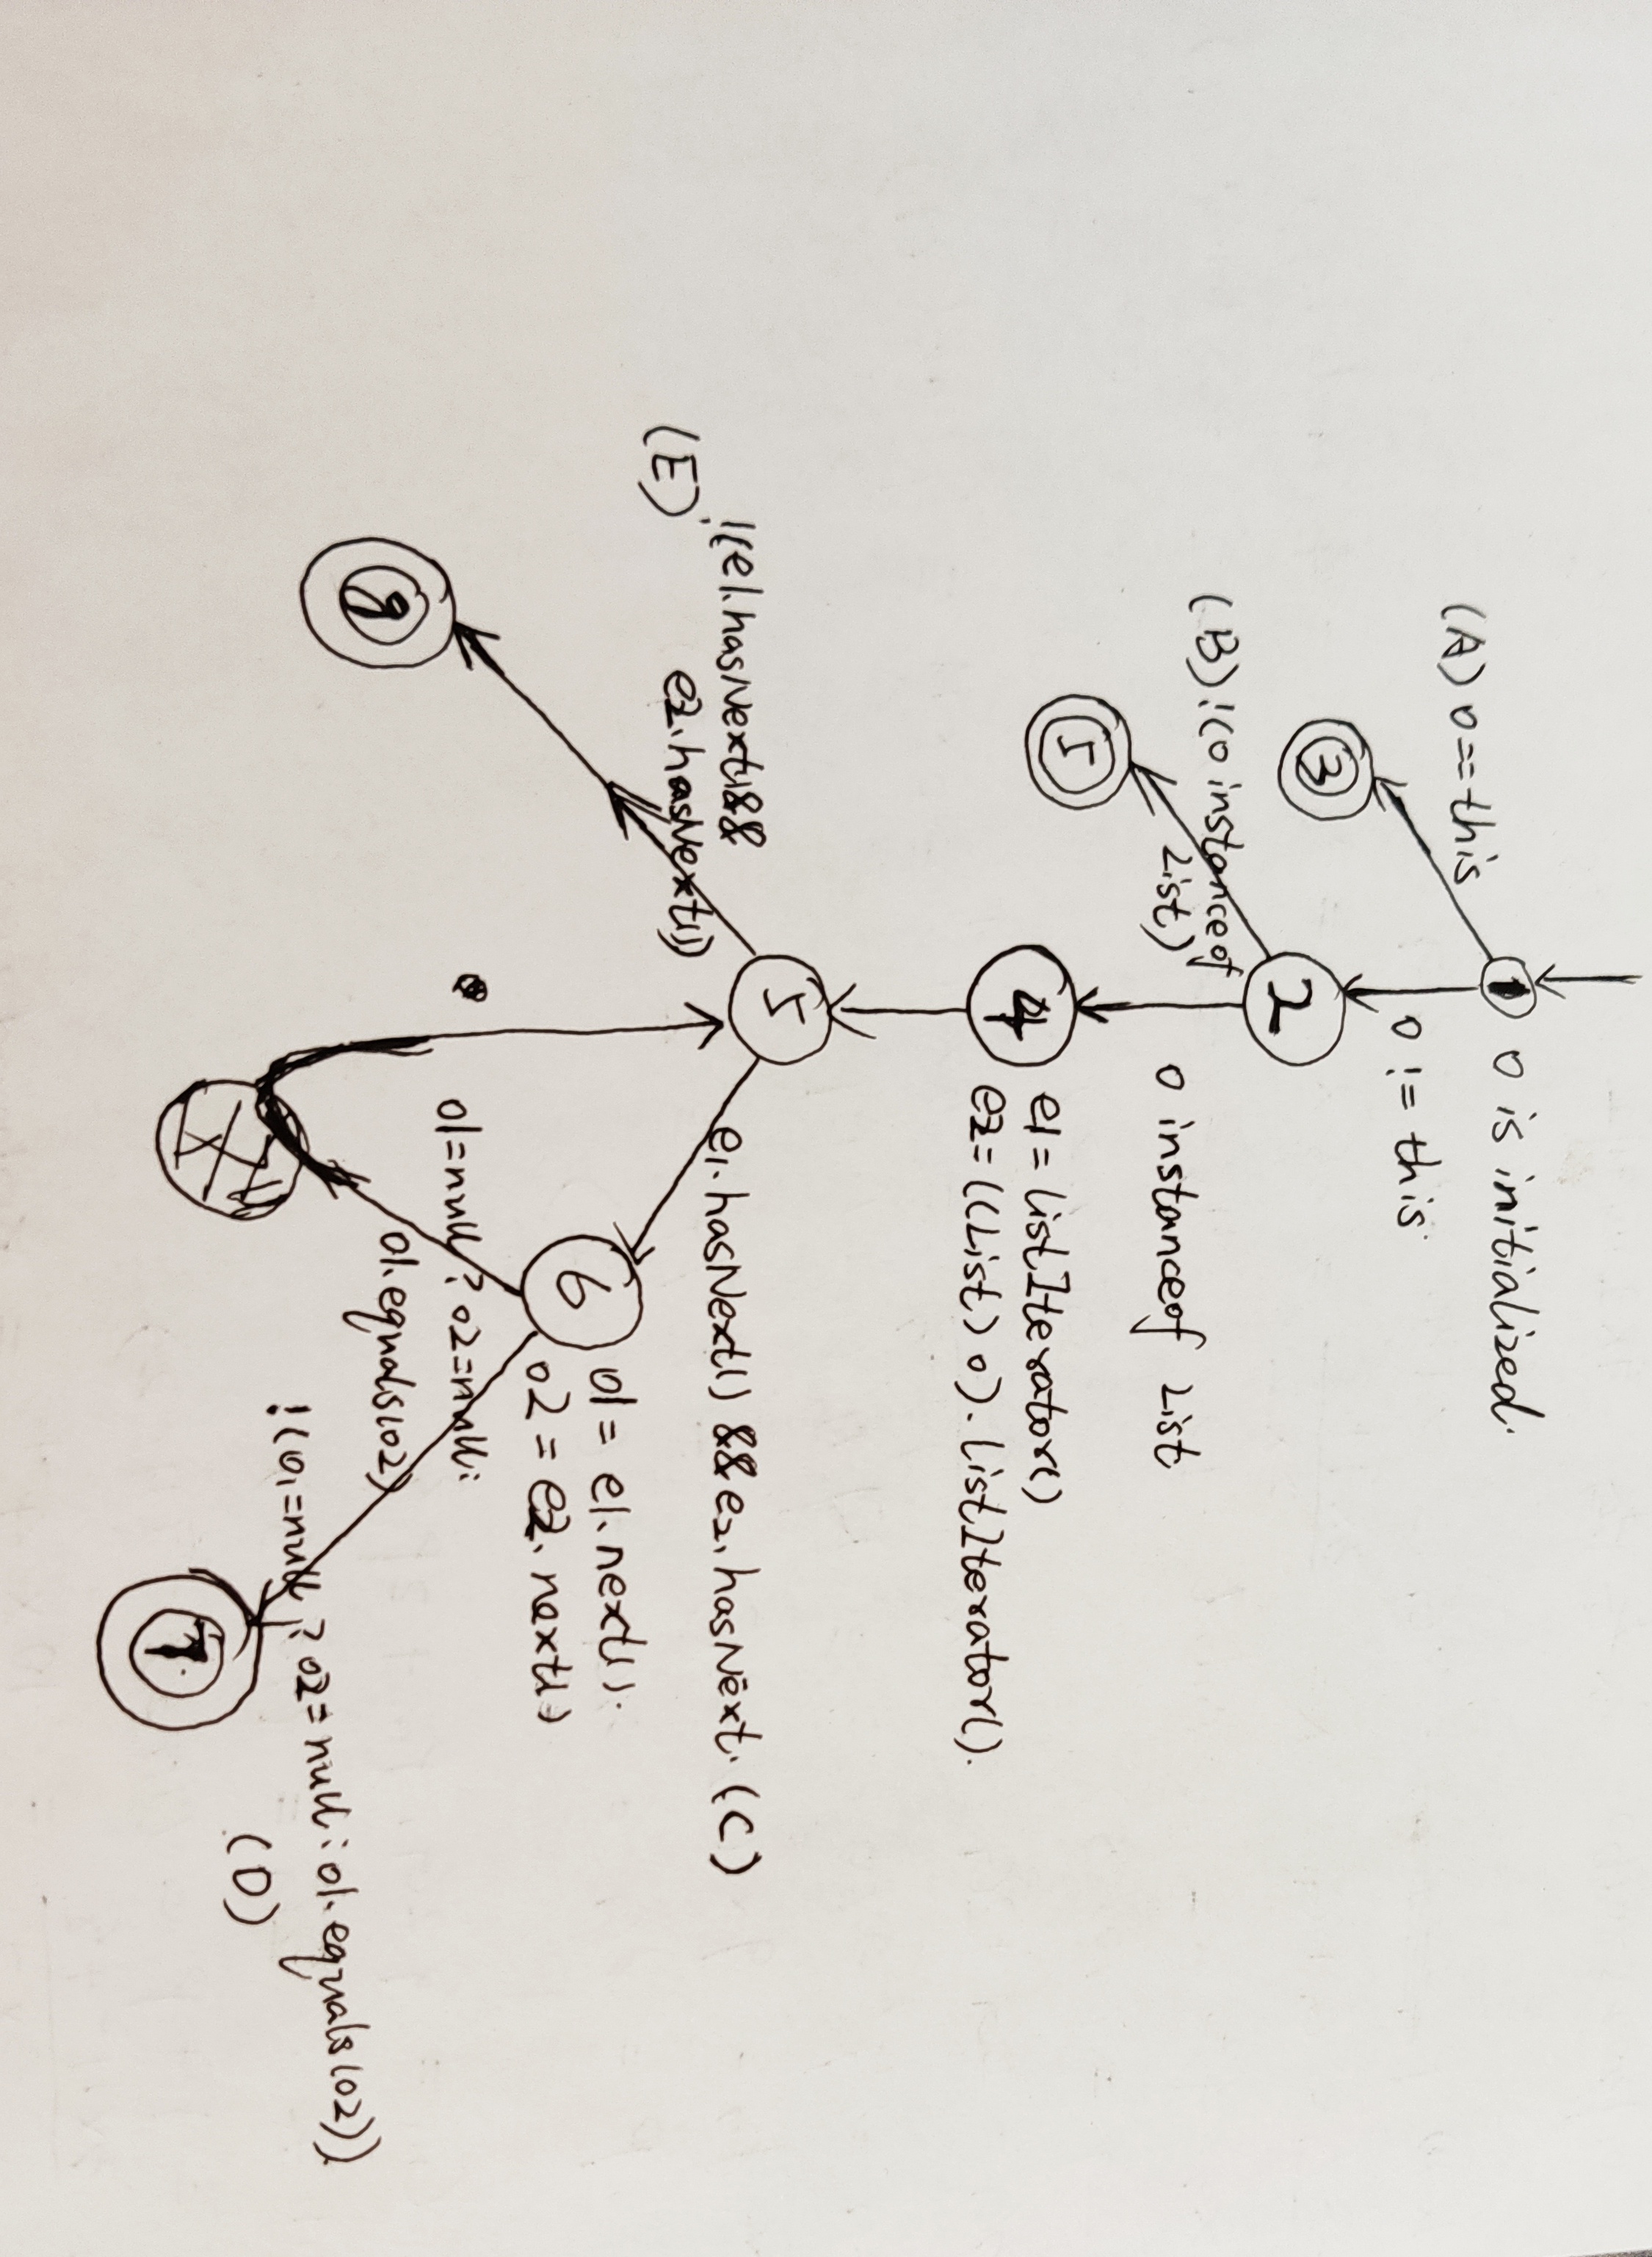 1 o is initialized.
(A) o==this
o != this
3
2
(B) !(o instanceof
List)
o instanceof List
5
4
e1 = listIterator()
e2 = ((List) o). listIterator().
5
!(e1.hasNext()&&
e2.hasNext())
(E)
e1.hasNext() && e2.hasNext. (C)
6
o1 = e1.next().
o2 = e2.next()
o1=null ? o2=null:
o1.equals(o2)
!(o1=null ? o2=null : o1.equals(o2)).
(D)
7